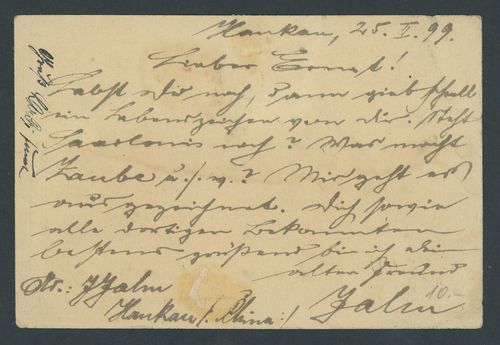 Hankau, 25. I. 99.
Lieber Ernst!
Lebst Du noch, dann gieb schnell
ein Lebenszeichen von dir. Steht
Saarlouis noch? Was macht
Taube u.s.w.? Mir geht es
ausgezeichnet. Dich sowie
alle dortigen Bekannten
bestens grüßend bin ich dein
alter Freund
Jalm
Ad.: J Jalm
Hankau /: China :/
10.-